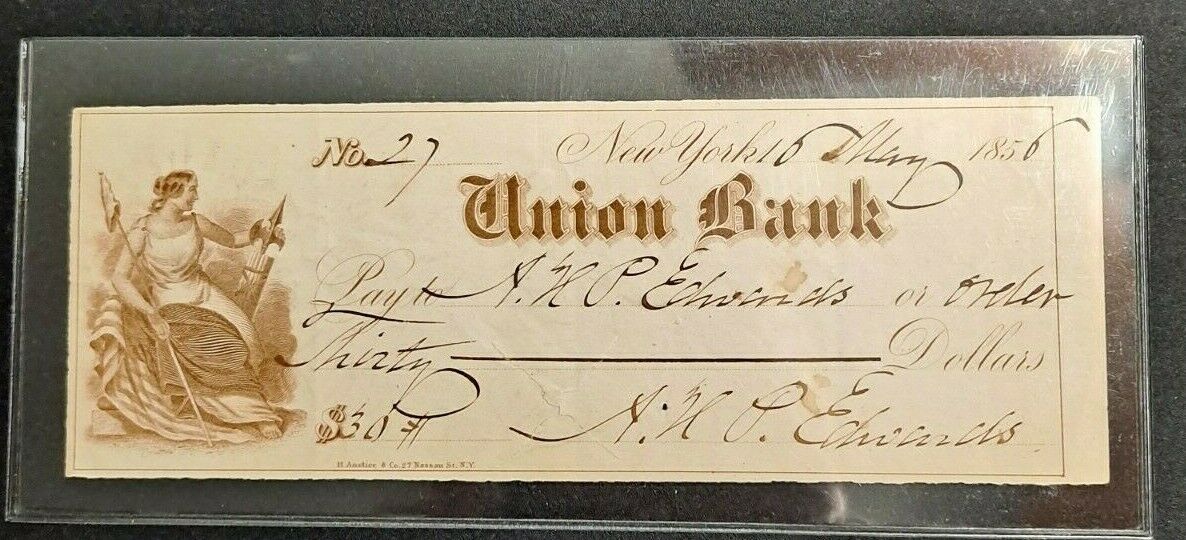 No. 27 New York 16 May 1856
Union Bank
Pay to A. H. P. Edwards or order
Thirty Dollars
$30 A. H. P. Edwards
H. Anstice & Co. 27 Nassau St. N.Y.